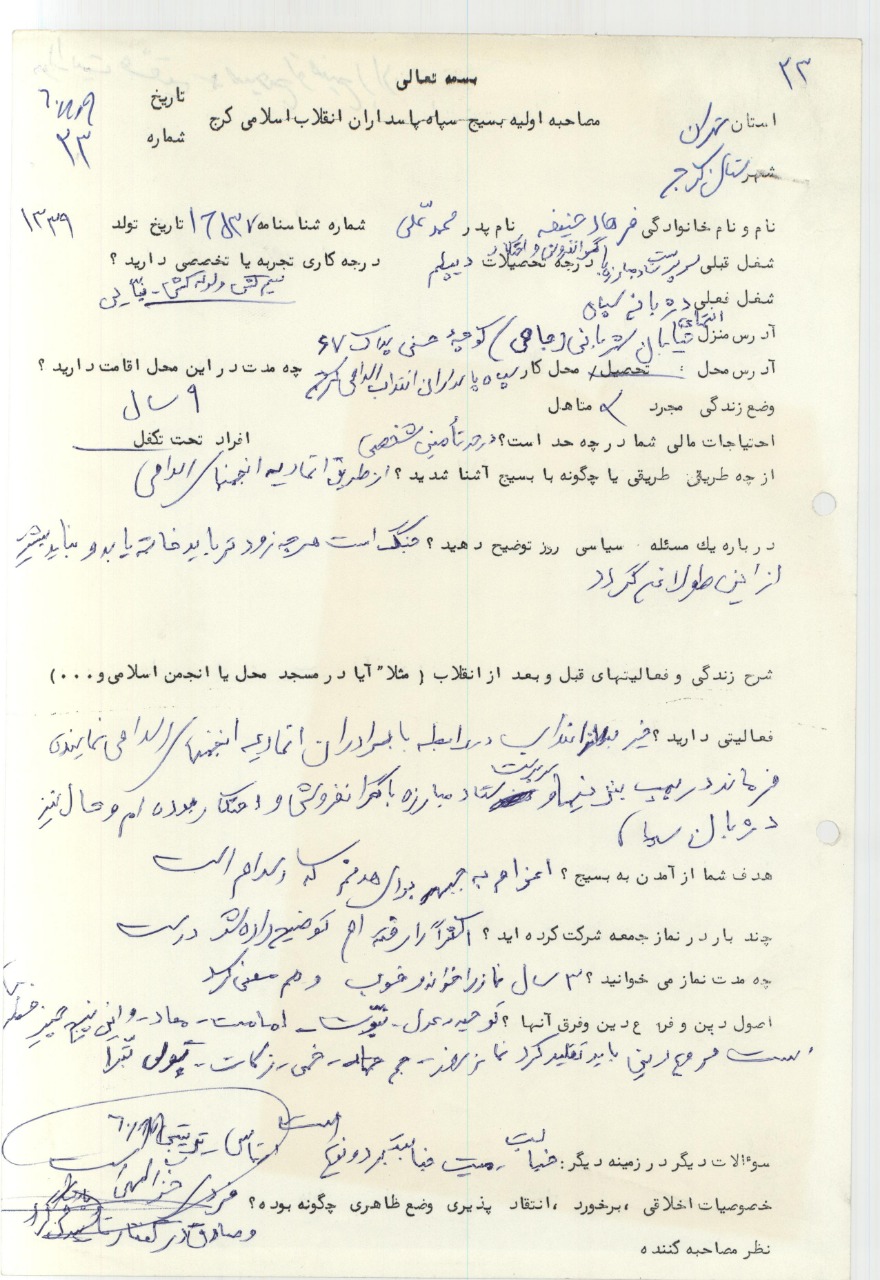 ۳۳
بسمه تعالی
استان تهران
مصاحبه اولیه بسیج سپاه پاسداران انقلاب اسلامی کرج
تاریخ
شماره ۳۳
شهرستان کرج
نام و نام خانوادگی فرهاد حنیفه نام پدر محمد علی شماره شناسنامه تاریخ تولد ۱۳۳۹
شغل قبلی سرپرست ستاد مبارزه با گرانفروشی و احتکار درجه تحصیلات دیپلم درجه کاری تجربه یا تخصصی دارید ؟
شغل فعلی دژبانی سپاه سیم کشی و لوله کشی
آدرس منزل انتهای خیابان شهربانی کوچه حسنی پلاک ۶۷
آدرس محل : تحصیل / محل کار سپاه پاسداران انقلاب اسلامی کرج چه مدت در این محل اقامت دارید ؟
وضع زندگی مجرد متاهل ۹ سال
احتیاجات مالی شما در چه حد است؟ در حد تأمین شخصی افراد تحت تکفل
از چه طریقی طریقی یا چگونه با بسیج آشنا شدید ؟ از طریق اتحادیه انجمنهای اسلامی
درباره یک مسئله سیاسی روز توضیح دهید ؟ جنگ است هرچه زودتر باید خاتمه یابد و نباید بیشتر
از این طولانی گردد
شرح زندگی و فعالیتهای قبل و بعد از انقلاب ( مثلا" آیا در مسجد محل یا انجمن اسلامی و ۰۰۰)
فعالیتی دارید ؟ خیر بعد از انقلاب در رابطه با برادران اتحادیه انجمنهای اسلامی نماینده
فرماندار پمپ بنزینها و سرپرست ستاد مبارزه با گرانفروشی و احتکار بوده ام و حال نیز
دژبان سپاه
هدف شما از آمدن به بسیج ؟ اعزام به جبهه برای هدفم که اسلام است
چند بار در نماز جمعه شرکت کرده اید ؟ اکثراً رفته ام توضیح داده شد درست
چه مدت نماز می خوانید ؟ ۳ سال نماز را خواند و خوب و هم معنی کرد
اصول دین و فرع دین وفرق آنها ؟ توحید - عدل - نبوت - امامت - معاد - و این
است فروع دین باید تقلید کرد نماز روزه - حج جهاد - خمس - زکات - تولی تبرا
سوالات دیگر در زمینه دیگر :
خصوصیات اخلاقی ، برخورد ، انتقاد پذیری وضع ظاهری چگونه بوده ؟
نظر مصاحبه کننده